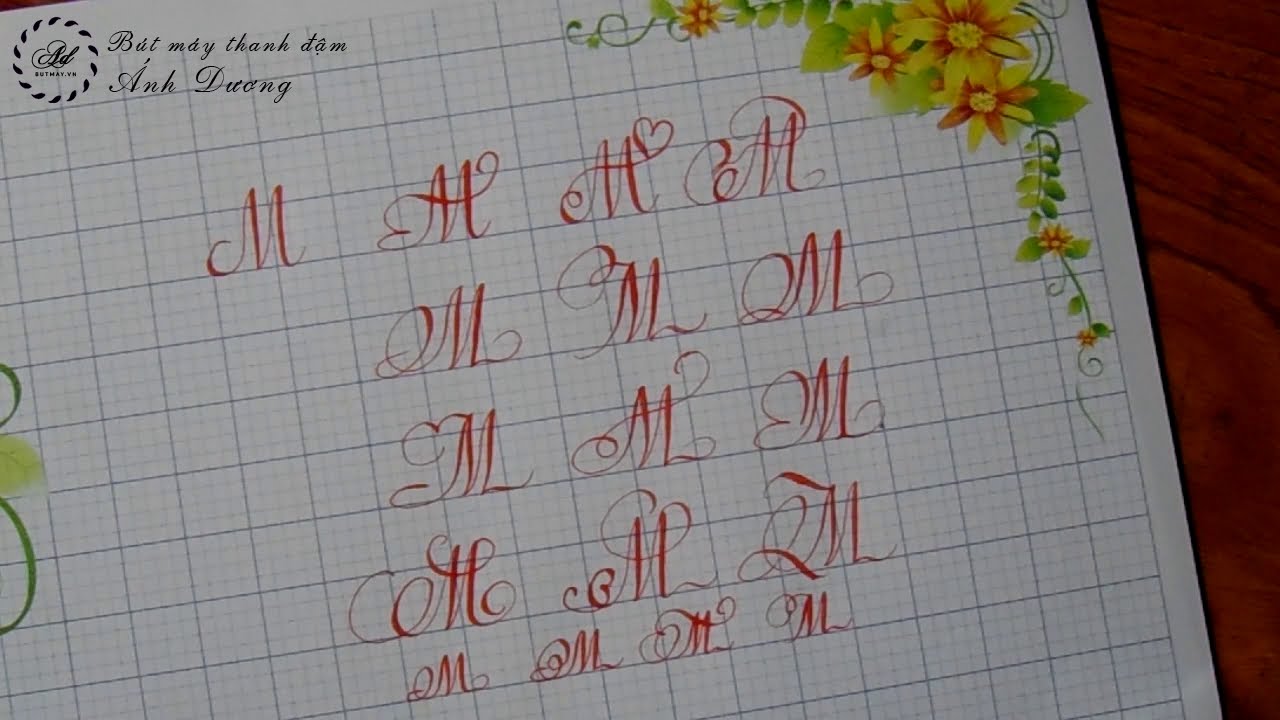 Bút máy thanh đậm
Ánh Dương
Ad
BUTMAY.VN
M M M M
M M M
M M M
M M M
M M M M